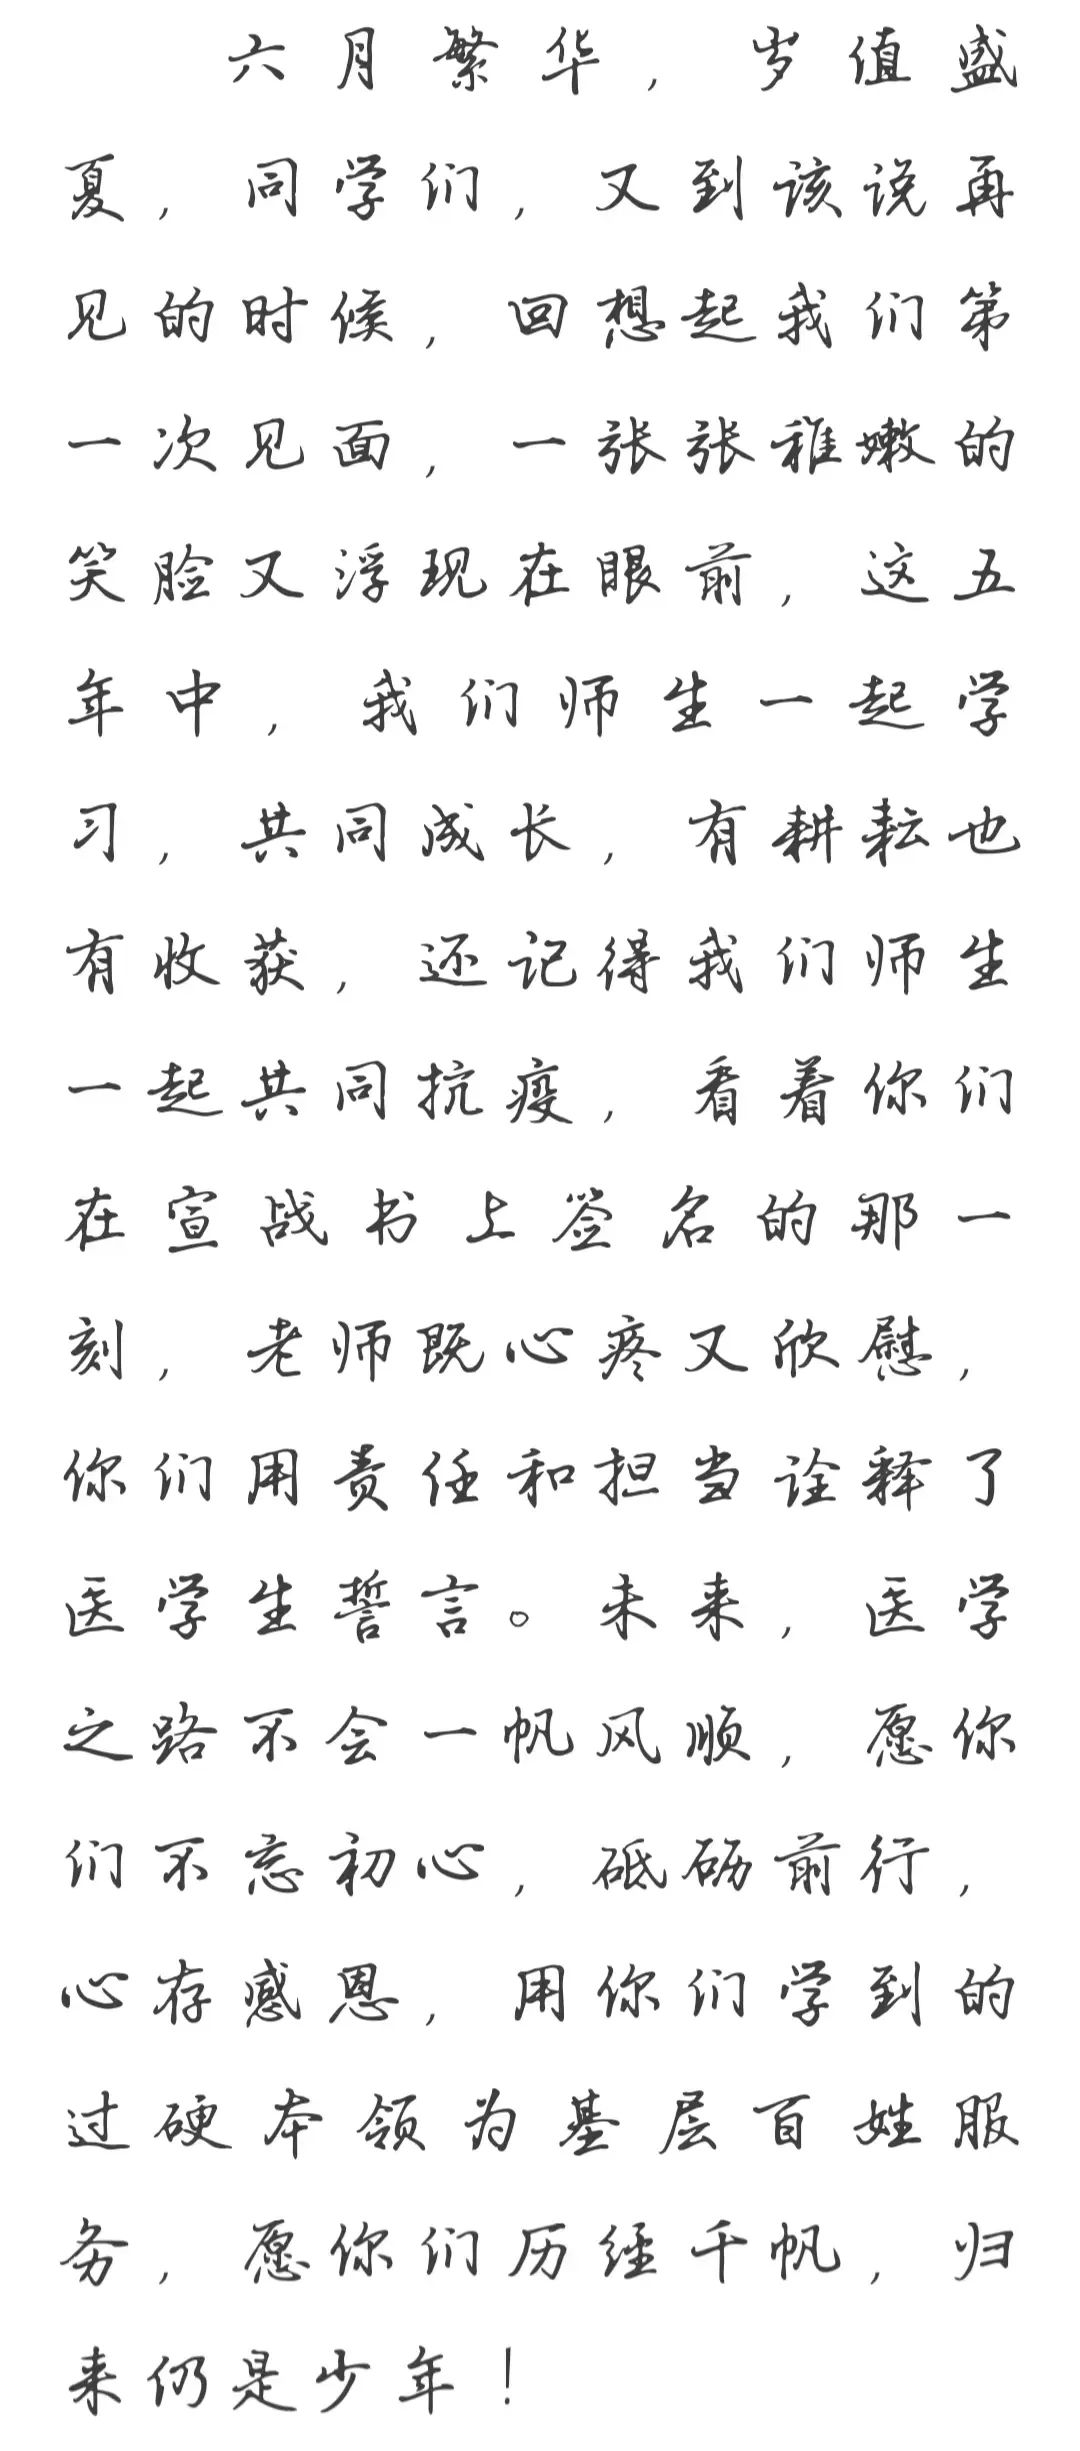 六月繁华，岁值盛
夏，同学们，又到该说再
见的时候，回想起我们第
一次见面，一张张稚嫩的
笑脸又浮现在眼前，这五
年中，我们师生一起学
习，共同成长，有耕耘也
有收获，还记得我们师生
一起共同抗疫，看着你们
在宣战书上签名的那一
刻，老师既心疼又欣慰，
你们用责任和担当诠释了
医学生誓言。未来，医学
之路不会一帆风顺，愿你
们不忘初心，砥砺前行，
心存感恩，用你们学到的
过硬本领为基层百姓服
务，愿你们历经千帆，归
来仍是少年！